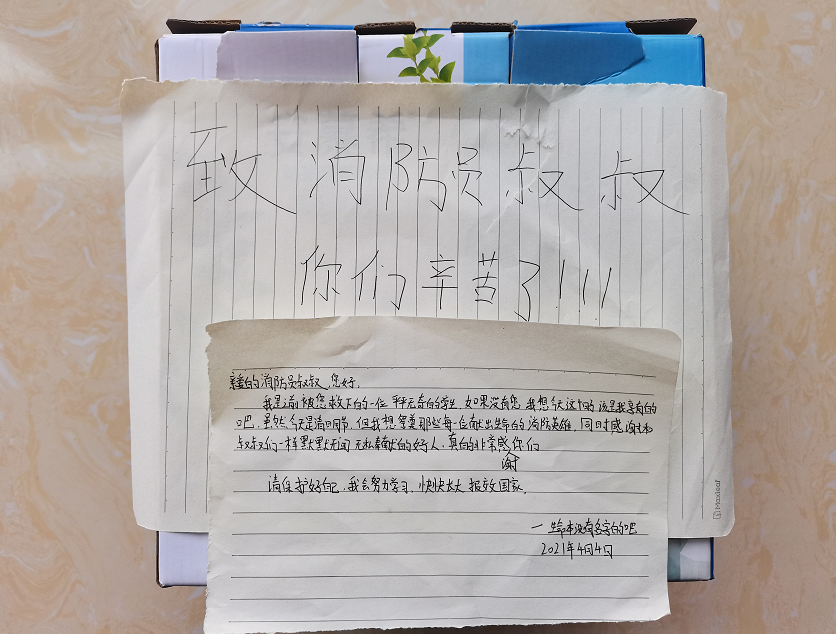 致消防员叔叔
你们辛苦了!!!
亲爱的消防员叔叔,您好,
我是之前被您救下的一位平平无奇的学生,如果没有您,我想今天这个 该是我享有的
吧,虽然今天是清明节,但我想 那些每一位献出生命的消防英雄,同时感谢
叔叔们一样默默无闻 无私奉献的好人,真的非常感谢你们
请保护好自己,我会努力学习,快快长大 报效国家,
一 本没有名字的吧
2021年4月4日
Maxleaf